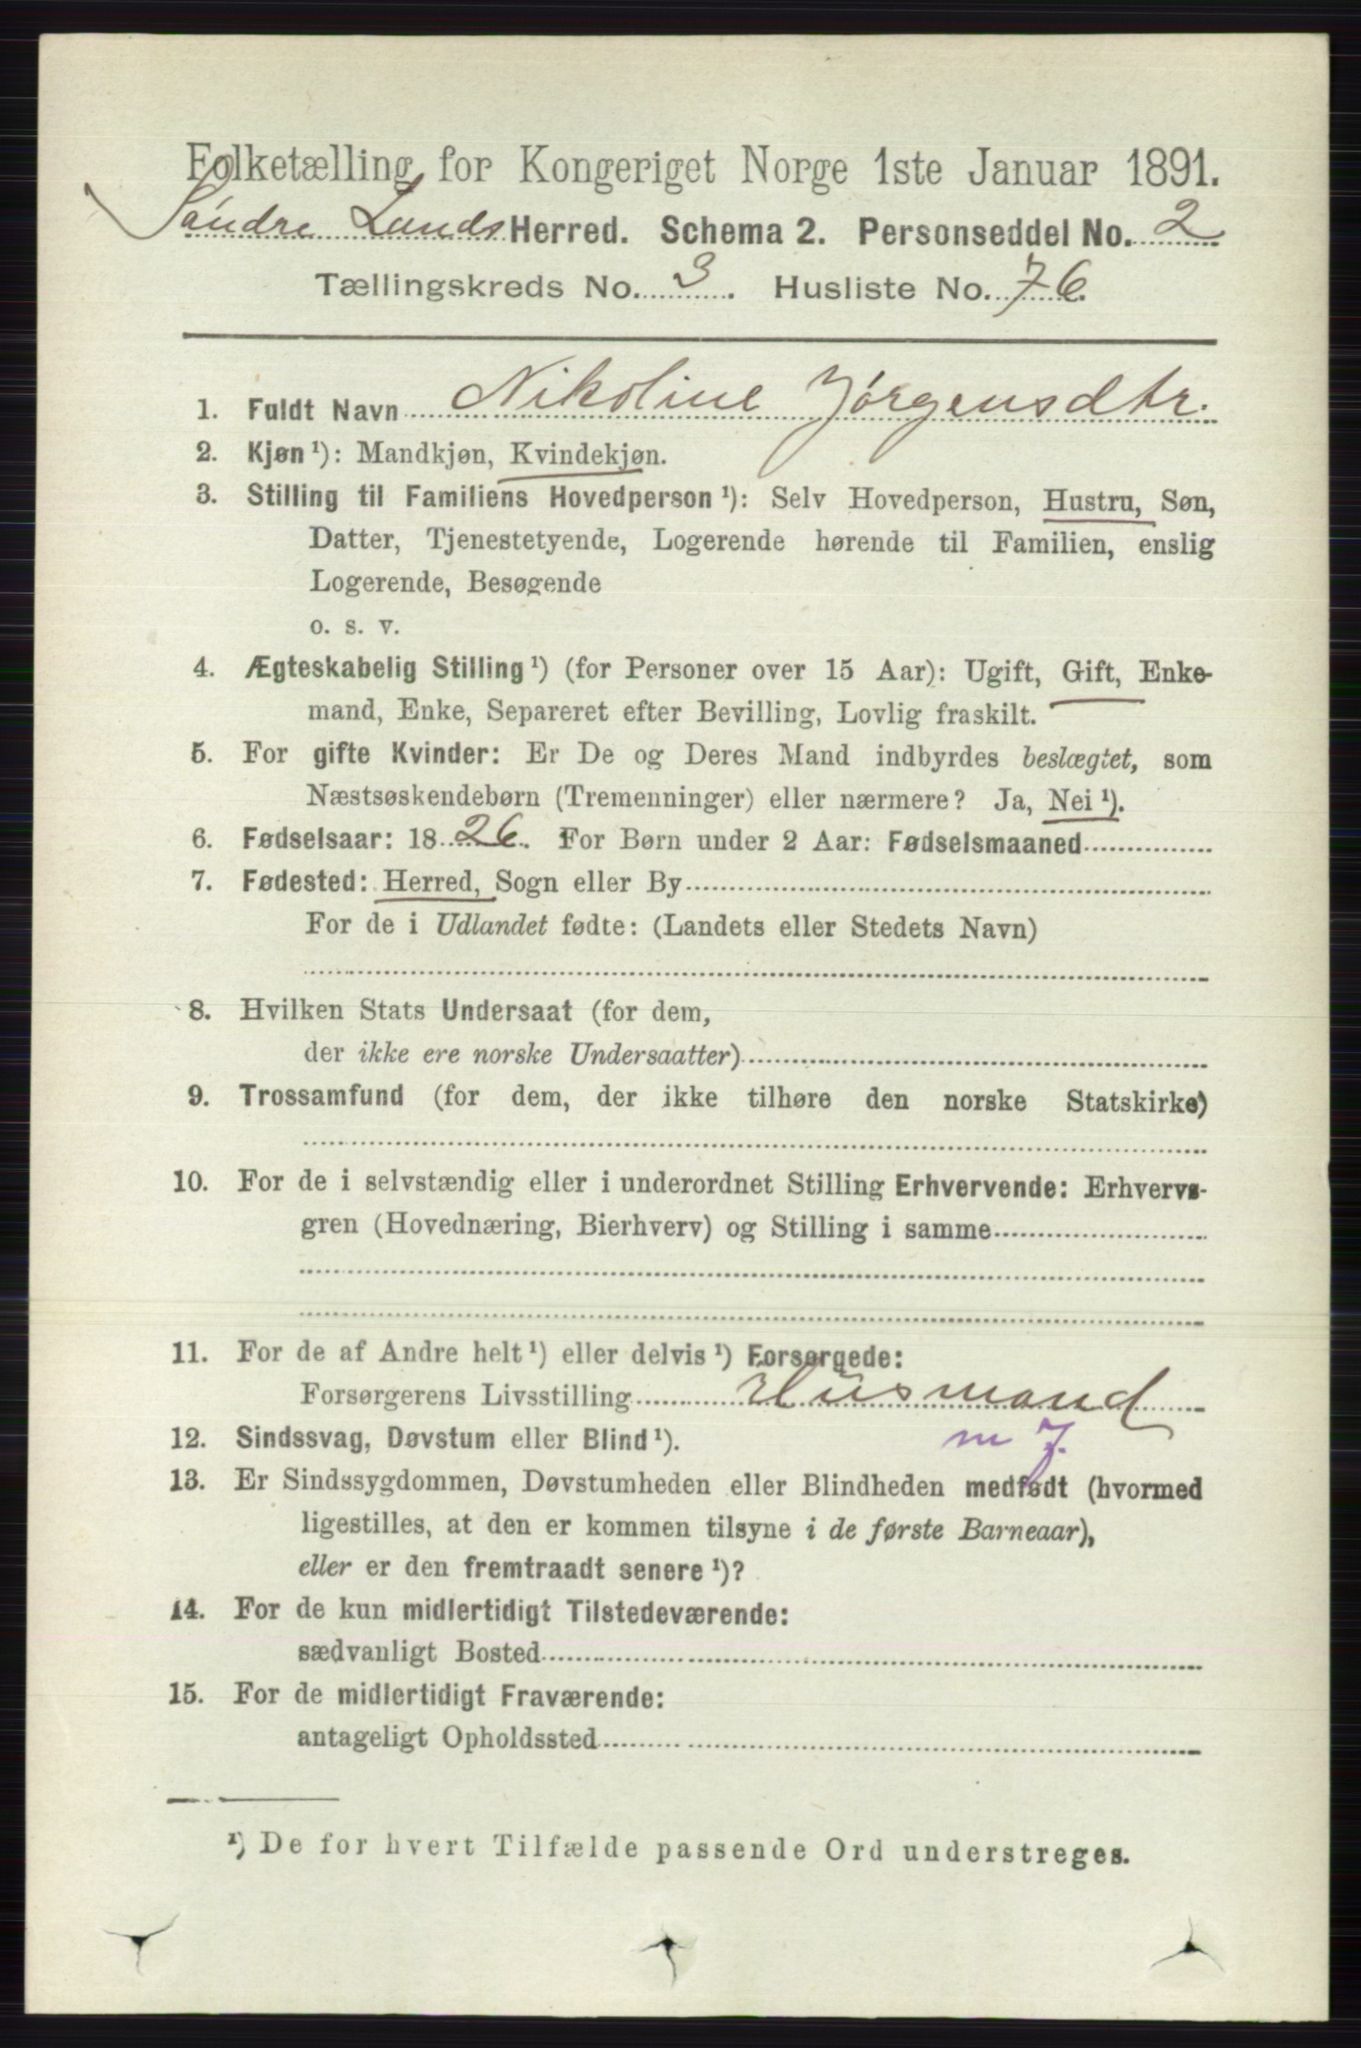 Folketælling for Kongeriget Norge 1ste Januar 1891.
Søndre Lands Herred. Schema 2. Personseddel No. 2
Tællingskreds No. 3. Husliste No. 76.
1. Fuldt Navn Nikoline Jørgensdtr.
2. Kjøn ¹): Mandkjøn, Kvindekjøn.
3. Stilling til Familiens Hovedperson ¹): Selv Hovedperson, Hustru, Søn,
Datter, Tjenestetyende, Logerende hørende til Familien, enslig
Logerende, Besøgende
o. s. v.
4. Ægteskabelig Stilling ¹) (for Personer over 15 Aar): Ugift, Gift, Enke-
mand, Enke, Separeret efter Bevilling, Lovlig fraskilt.
5. For gifte Kvinder: Er De og Deres Mand indbyrdes beslægtet, som
Næstsøskendebørn (Tremenninger) eller nærmere? Ja, Nei ¹).
6. Fødselsaar: 1826. For Børn under 2 Aar: Fødselsmaaned
7. Fødested: Herred, Sogn eller By
For de i Udlandet fødte: (Landets eller Stedets Navn)
8. Hvilken Stats Undersaat (for dem,
der ikke ere norske Undersaatter)
9. Trossamfund (for dem, der ikke tilhøre den norske Statskirke)
10. For de i selvstændig eller i underordnet Stilling Erhvervende: Erhvervs-
gren (Hovednæring, Bierhverv) og Stilling i samme
11. For de af Andre helt ¹) eller delvis ¹) Forsørgede:
Forsørgerens Livsstilling Husmand
12. Sindssvag, Døvstum eller Blind ¹). m J.
13. Er Sindssygdommen, Døvstumheden eller Blindheden medfødt (hvormed
ligestilles, at den er kommen tilsyne i de første Barneaar),
eller er den fremtraadt senere ¹)?
14. For de kun midlertidigt Tilstedeværende:
sædvanligt Bosted
15. For de midlertidigt Fraværende:
antageligt Opholdssted
¹) De for hvert Tilfælde passende Ord understreges.